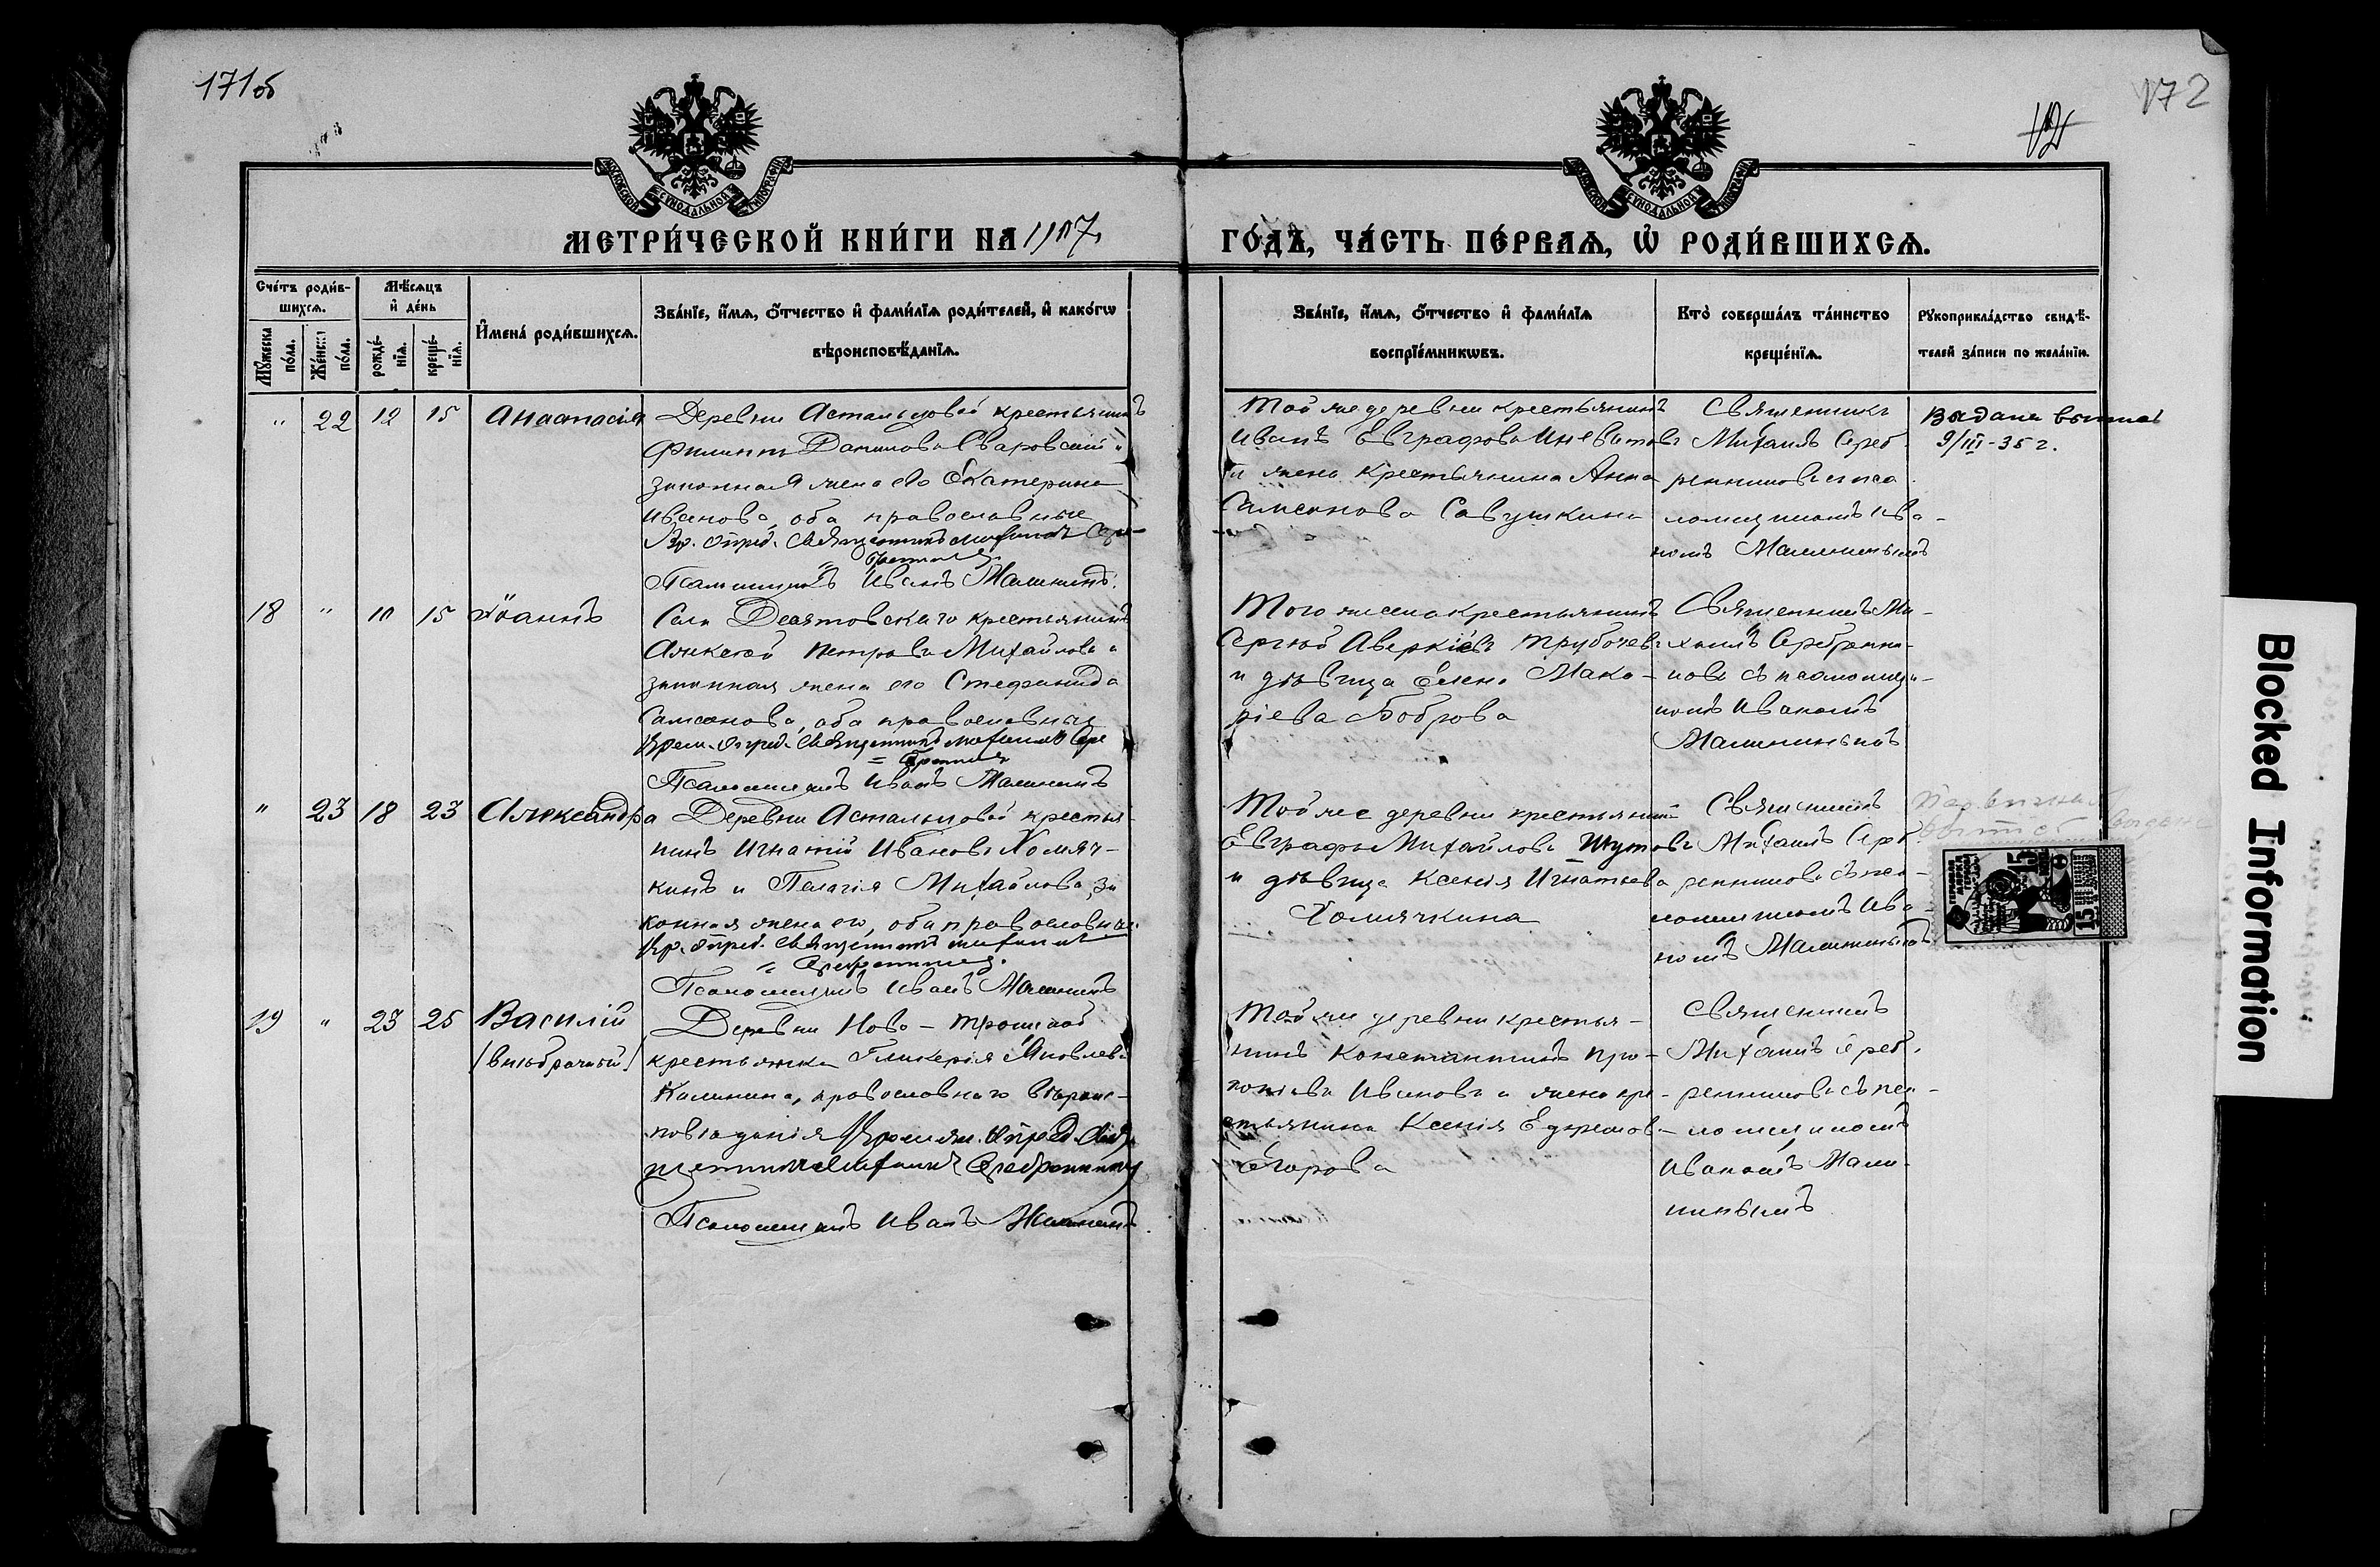 171об
172
МОСКОВСКОЙ СѴНОДАЛЬНОЙ ТИПОГРАФІИ
МОСКОВСКОЙ СѴНОДАЛЬНОЙ ТИПОГРАФІИ
МЕТРИ́ЧЕСКОЙ КНИ́ГИ НА 1917
ГО́ДЪ, ЧА́СТЬ ПЕ́РВАѦ, Ѽ РОДИ́ВШИХСѦ.
Сче́тъ роди́в-
шихсѧ.
Мѣ́сѧцъ
и҆ де́нь
Мꙋ́жеска
по́ла.
Же́нска
по́ла.
рожде́-
нїѧ.
креще́-
нїѧ.
И҆мена̀ роди́вшихсѧ.
Зва́нїе, и҆́мѧ, ѻ҆́тчество и҆ фами́лїѧ роди́телей, и҆ како́гѡ
вѣроисповѣ́данїѧ.
Зва́нїе, и҆́мѧ, ѻ҆́тчество и҆ фами́лїѧ
воспрїе́мникѡвъ.
Кто̀ соверша́лъ та́инство
креще́нїѧ.
Рꙋкоприкла́дство свидѣ́-
телей за́писи по жела́нїю.
" 22 12 15 Анастасія
Деревни Астальцовой крестьянинъ
Филиппъ Даниловъ Сваровскій и
законная жена его Екатерина
Иванова, оба православные
Вр. опред. Священникъ Михаилъ Сере-
Псаломщикъ Иванъ Малининъ.
Той же деревни крестьянинъ
Иванъ Евграфовъ
и жена крестьянина Анна
Самсонова Савушкина
Священникъ
Михаилъ Сереб-
ренниковъ съ пса
ломщикомъ Ива-
номъ Малининымъ
Выдана выпись
9/III-35 г.
18 " 11 15 Іоаннъ
Села Десятовскаго крестьянинъ
Алексѣй Петровъ Михайловъ и
законная жена его Стефанида
Самсонова, оба православные
Врем. опред. Священникъ Михаилъ Сере
Псаломщикъ Иванъ Малининъ
Того же села крестьянинъ
Сергѣй Аверкіевъ Трубочевъ
и дѣвица Елена Мака-
ріева Боброва
Священникъ Ми-
хаилъ Серебренни-
ковъ съ псаломщи-
комъ Иваномъ
Малининымъ
" 23 18 23 Александра
Деревни Астальцовой крестья-
нинъ Игнатій Ивановъ Хомяч-
кинъ и Пелагія Михайлова, за
конная жена его, оба православные
Вр. опред. Священникъ Михаилъ
Серебренниковъ.
Псаломщикъ Иванъ Малининъ
Той же деревни крестьянинъ
Евграфъ Михайловъ Шутовъ
и дѣвица Ксенія Игнатьева
Хомячкина
Священникъ
Михаилъ Сереб-
ренниковъ съ пса-
ломщикомъ Ива
номъ Малининымъ
15
19 " 23 25 Василій
/внѣбрачный/
Деревни Ново-Троицкой
крестьянка Гликерія Яковлева
Калинина, православнаго вѣроис-
повѣданія Времен. опред. Свя-
щенникъ Михаилъ Серебренниковъ
Псаломщикъ Иванъ Малининъ
Той же деревни крестья-
нинъ Константинъ Про-
копьевъ Ивановъ и жена кре-
стьянина Ксенія Ефремов-
Егорова
Священникъ
Михаилъ Сереб-
ренниковъ съ пса-
ломщикомъ
Иваномъ Мали-
нинымъ
Blocked Information